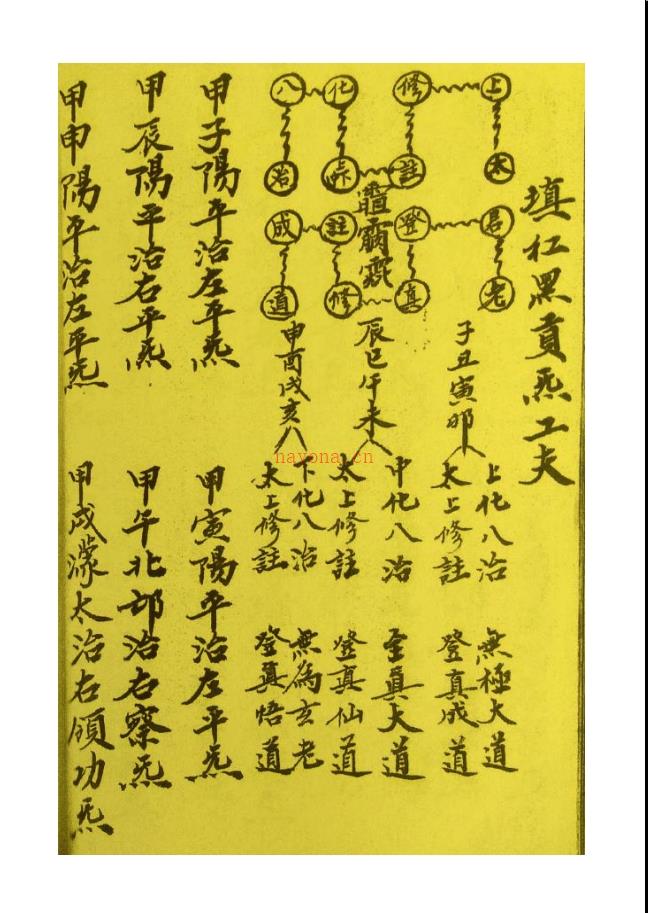 填红黑貢炁工夫
上太
修註
君老
登真
化
八治
註修
成道
子丑寅卯
上化八治 無極大道
太上修註 登真成道
辰巳午未
中化八治 至真大道
太上修註 登真仙道
申酉戌亥
下化八治 無為玄老
太上修註 登真悟道
甲子陽平治左平炁
甲寅陽平治左平炁
甲辰陽平治右平炁
甲午北邙治右察炁
甲申陽平治左平炁
甲戌濛太治右領功炁
nayona.cn